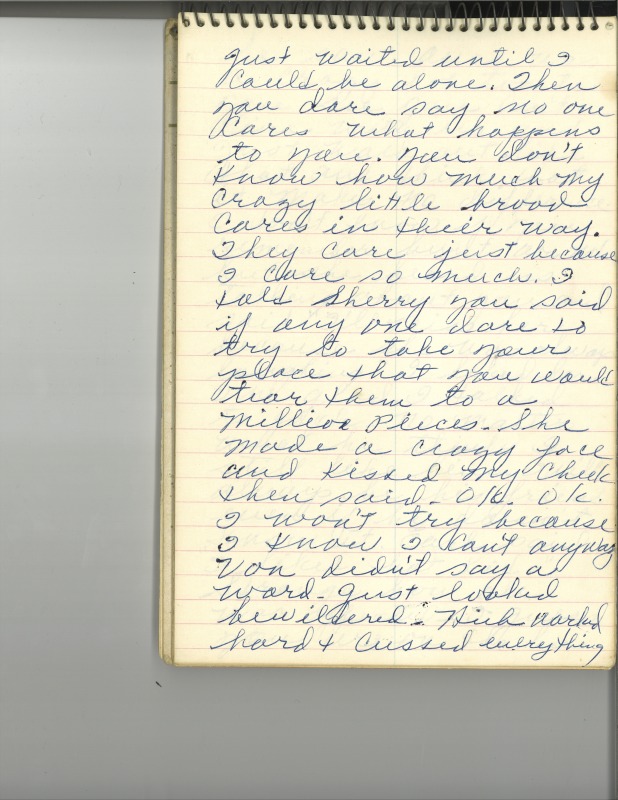 Just waited until I
could be alone. Then
you dare say no one
cares what happens
to you. You don't
know how much my
crazy little brood
cares in their way.
They care just because
I care so much. I
told Sherry you said
if any one dare to
try to take your
place that you would
tear them to a
million pieces. She
made a crazy face
and kissed my cheek
then said - O.K. O.K.
I won't try because
I know I can't anyway
Von didn't say a
word - just looked
bewildered - Hick worked
hard & cussed everything